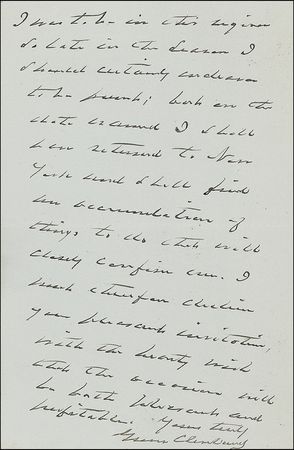 I was to be in this region
so late in the season I
should certainly endeavor
to be present; but on the
date named I shall
have returned to New
York and shall find
an accumulation of
things to do that will
closely confine me. I
must therefore decline
your pleasant invitation,
with the hearty wish
that the occasion will
be both pleasant and
profitable. Yours truly
Grover Cleveland